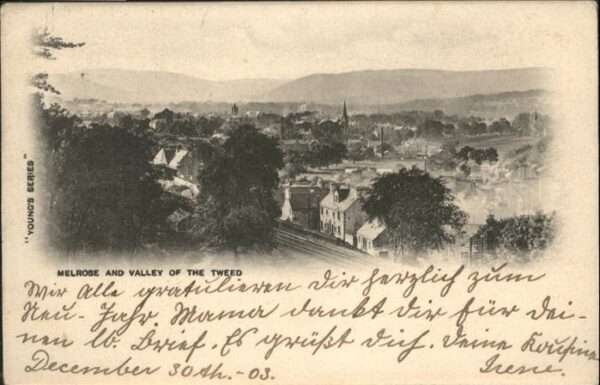 "YOUNG'S SERIES"
MELROSE AND VALLEY OF THE TWEED
Wir Alle gratulieren Dir herzlich zum
Neu-Jahr. Mama dankt dir für dei-
nen lb. Brief. Es grüßt dich. Deine Kousine
December 30th.-03. Irene.